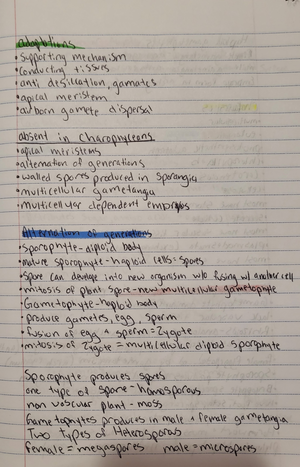 adaptions
• supporting mechanism
• conducting tissues
• anti desiccation, gamates
• apical meristem
• airborn gamete dispersal
absent in Charophyceons
• apical mirislems
• alternation of generations
• walled spores produced in sporangia
• multicellular gametangia
• multicellular dependent embryos
Alternation of generations
• sporophyte-diploid body
• mature sporophyte-haploid cells: spores
• spore can develop into new organism w/o fusing w/ another cell
• mitosis of plant spore-new multicellular gametophyte
• Gametophyte-haploid body
• produce gametes, egg, sperm
• fusion of egg + sperm = Zygote
• mitosis of Zygote = multicellular diploid sporophyte
Sporophyte produces spores
one type of spore-homosporous
non vascular plant-moss
Gametophytes produces in male + female gametangia
Two types of Heterosporous
female = megaspores male = microspores